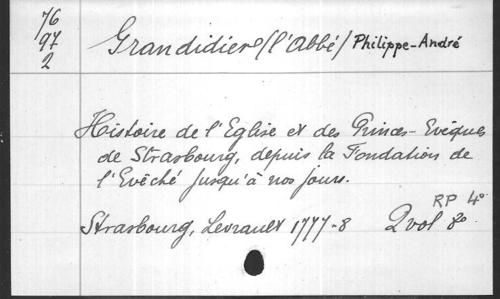 76
97
2
Grandidier (l'Abbé) Philippe-André
Histoire de l'Eglise et des Princes-Evêques
de Strasbourg, depuis la Fondation de
l'Evêché jusqu'à nos jours.
RP 4°
Strasbourg, Levrault 1777-8 2 vol 8°